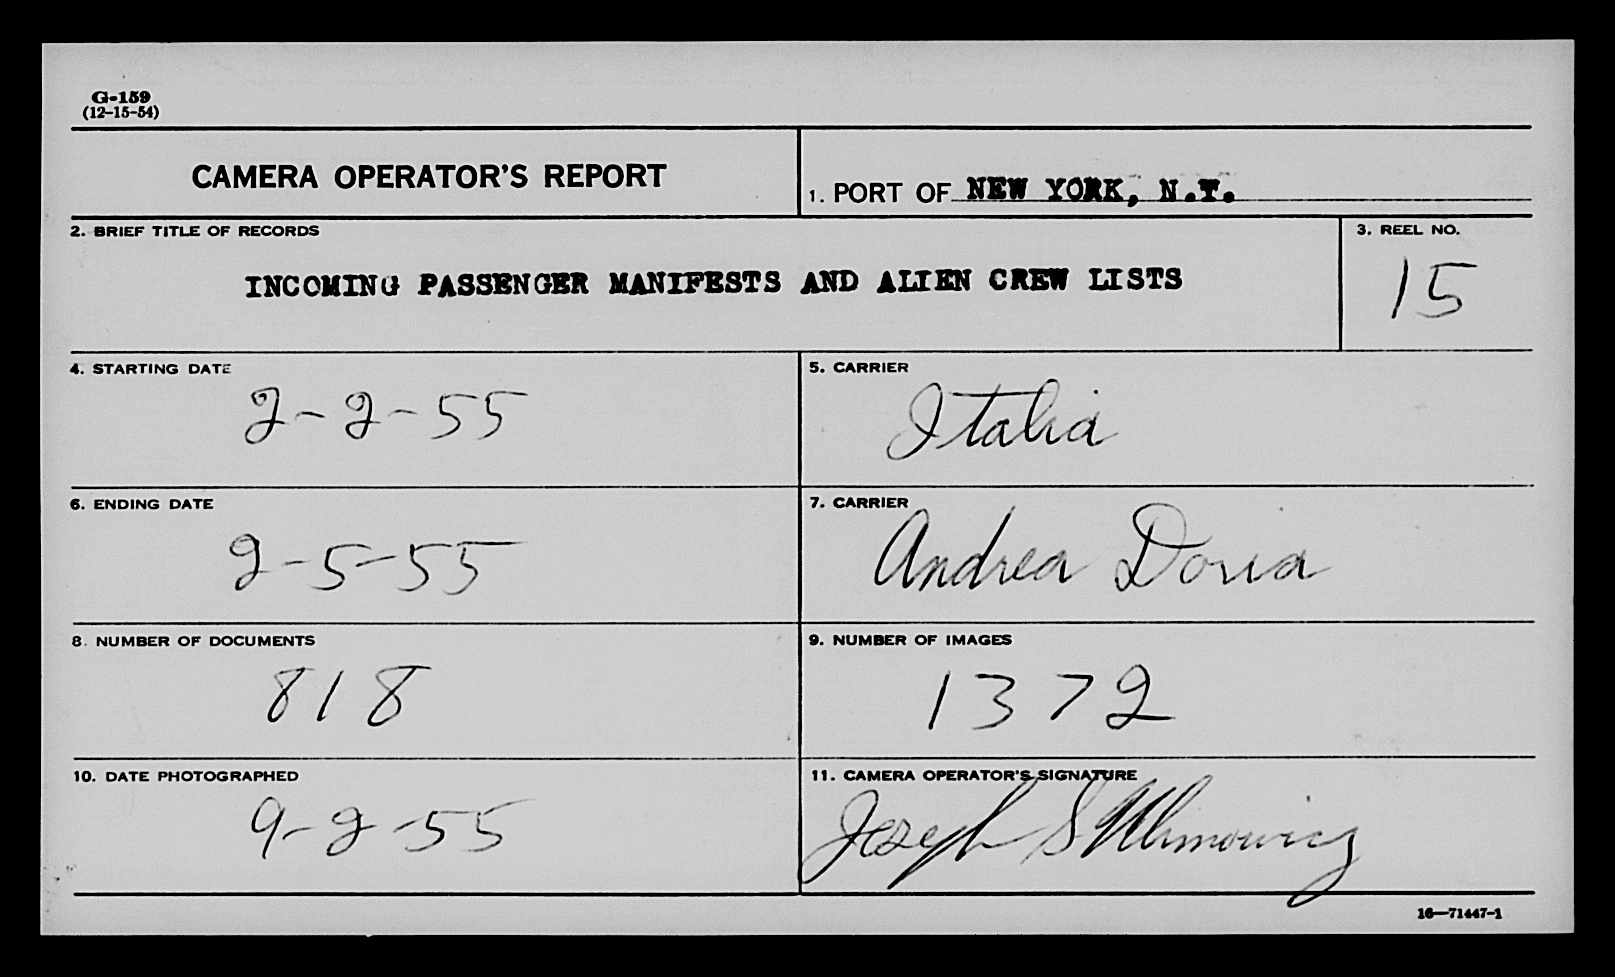 G-159
(12-15-54)
CAMERA OPERATOR'S REPORT
1. PORT OF NEW YORK, N.Y.
2. BRIEF TITLE OF RECORDS
INCOMING PASSENGER MANIFESTS AND ALIEN CREW LISTS
3. REEL NO.
15
4. STARTING DATE
2-2-55
5. CARRIER
Italia
6. ENDING DATE
2-5-55
7. CARRIER
Andrea Doria
8. NUMBER OF DOCUMENTS
818
9. NUMBER OF IMAGES
1372
10. DATE PHOTOGRAPHED
9-2-55
11. CAMERA OPERATOR'S SIGNATURE
Joseph S
16—71447-1